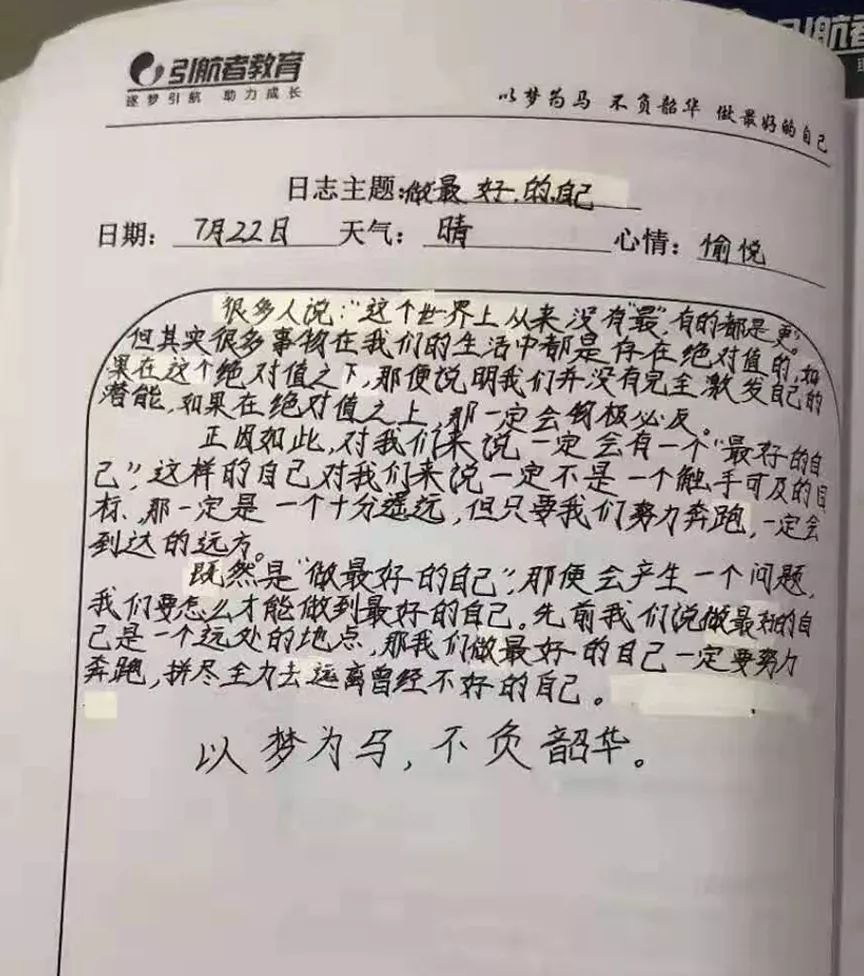 引航者教育
逐梦引航 助力成长
以梦为马 不负韶华 做最好的自己
引航者
日志主题:做最好的自己
日期: 7月22日 天气: 晴 心情: 愉悦
很多人说:“这个世界上从来没有“最”,有的都是更”。
但其实很多事物在我们的生活中都是存在绝对值的,如
果在这个绝对值之下,那便说明我们并没有完全激发自己的
潜能,如果在绝对值之上,那一定会物极必反。
正因如此,对我们来说一定会有一个“最好的自
己”,这样的自己对我们来说一定不是一个触手可及的目
标、那一定是一个十分遥远,但只要我们努力奔跑,一定会
到达的远方。
既然是“做最好的自己”,那便会产生一个问题,
我们要怎么才能做到最好的自己。先前我们说做最好的自
己是一个远处的地点,那我们做最好的自己一定要努力
奔跑,拼尽全力去远离曾经不好的自己。
以梦为马,不负韶华。